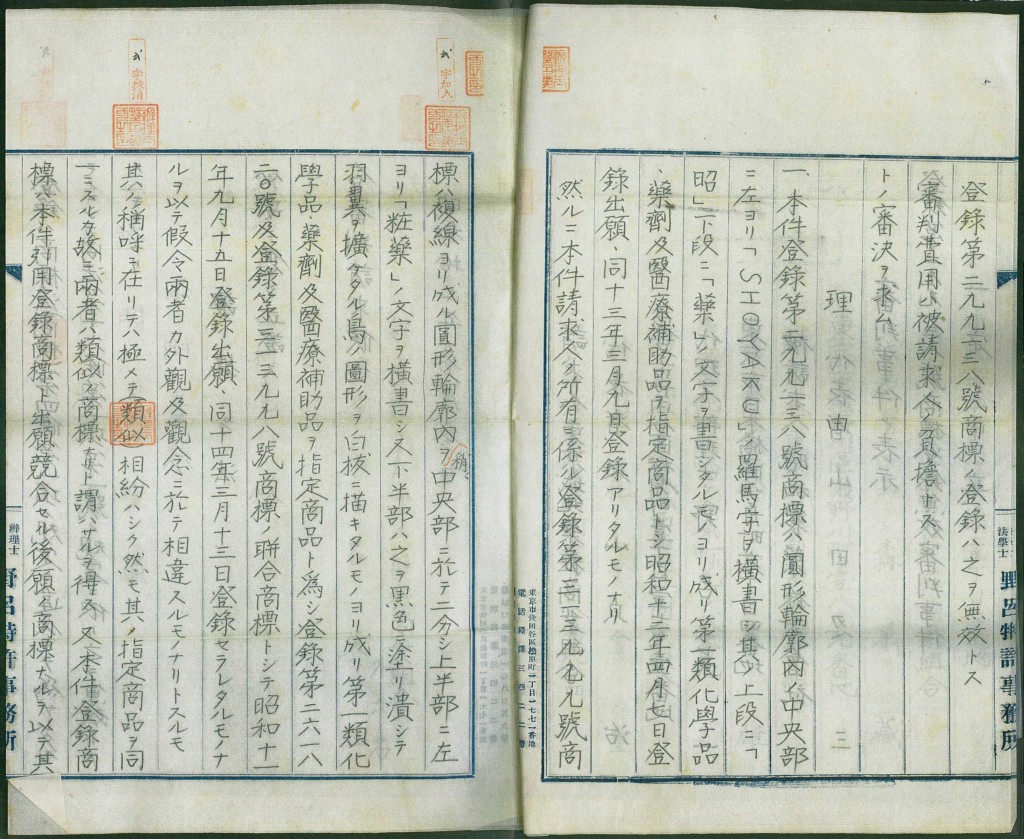 登録第二九九一三八號商標ノ登録ハ之ヲ無效トス
審判費用ハ被請求人ノ負擔トス
トノ審決ヲ求ム
理由
一、本件登録第二九九一三八號商標ハ圓形輪廓內ノ中央部
ニ左ヨリ「SHOYAKU」ノ羅馬字ヲ橫書シ其ノ上段ニ「
昭」下段ニ「藥」ノ文字ヲ書シタルモノヨリ成リ第一類化學品
、藥劑及醫療補助品ヲ指定商品トシ昭和十二年四月七日登
錄出願、同十三年三月九日登錄アリタルモノナリ
然ルニ本件請求人ノ所有ニ係ル登錄第
九九九號商
標ハ複線ヨリ成ル圓形輪廓內ヲ中央部ニ於テ二分シ上半部ニ左
稍、
ヨリ「粧藥」ノ文字ヲ橫書シ又下半部ハ之ヲ黑色ニ塗リ潰シテ
羽翼ヲ擴ケタル鳥ノ圖形ヲ白拔ニ描キタルモノヨリ成リ第一類化
學品、藥劑及醫療補助品ヲ指定商品ト為シ登錄第二六一八
二〇號及登錄第三一三九九八號商標ノ聯合商標トシテ昭和十一
年九月十五日登錄出願、同十四年三月十三日登錄セラレタルモノナ
ルヲ以テ假令兩者カ外觀及觀念ニ於テ相違スルモノナリトスルモ
其ノ稱呼ニ在リテハ極メテ類似相紛ハシク然モ其ノ指定商品ヲ同
一ニスルカ故ニ兩者ハ類似ノ商標ナリト謂ハサルヲ得ス又本件登錄商
標ハ本件引用登錄商標ト出願競合セル後願ノ商標ナルヲ以テ其
弐字加入
弐字抹消
法學士
野呂特許事務所
三
東京市世田谷區松原町一丁目一七七一番地
辨理士
野呂特許事務所